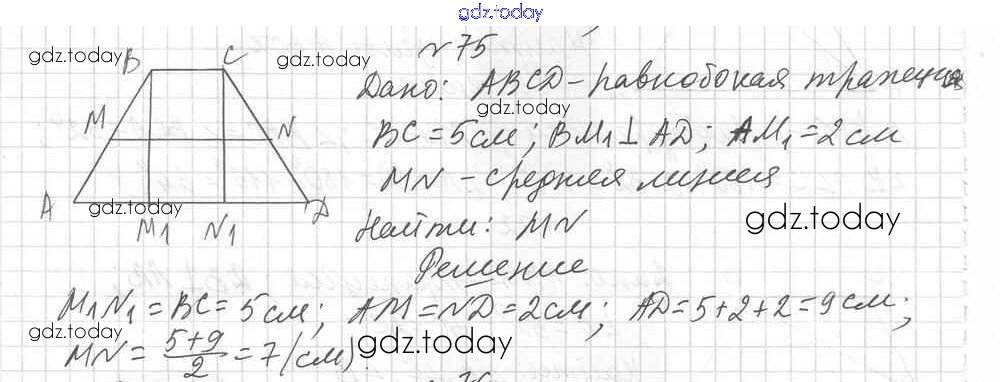 gdz.today
№ 75
gdz.today B C gdz.today
Дано: ABCD – равнобокая трапеция
gdz.today
M N BC = 5 см; BM₁ ⊥ AD; AM₁ = 2 см
MN – средняя линия
A gdz.today D
M₁ N₁ Найти: MN gdz.today
Решение
M₁N₁ = BC = 5 см; AM = ND = 2 см; AD = 5 + 2 + 2 = 9 см;
gdz.today
MN = (5+9)/2 = 7 (см). gdz.today